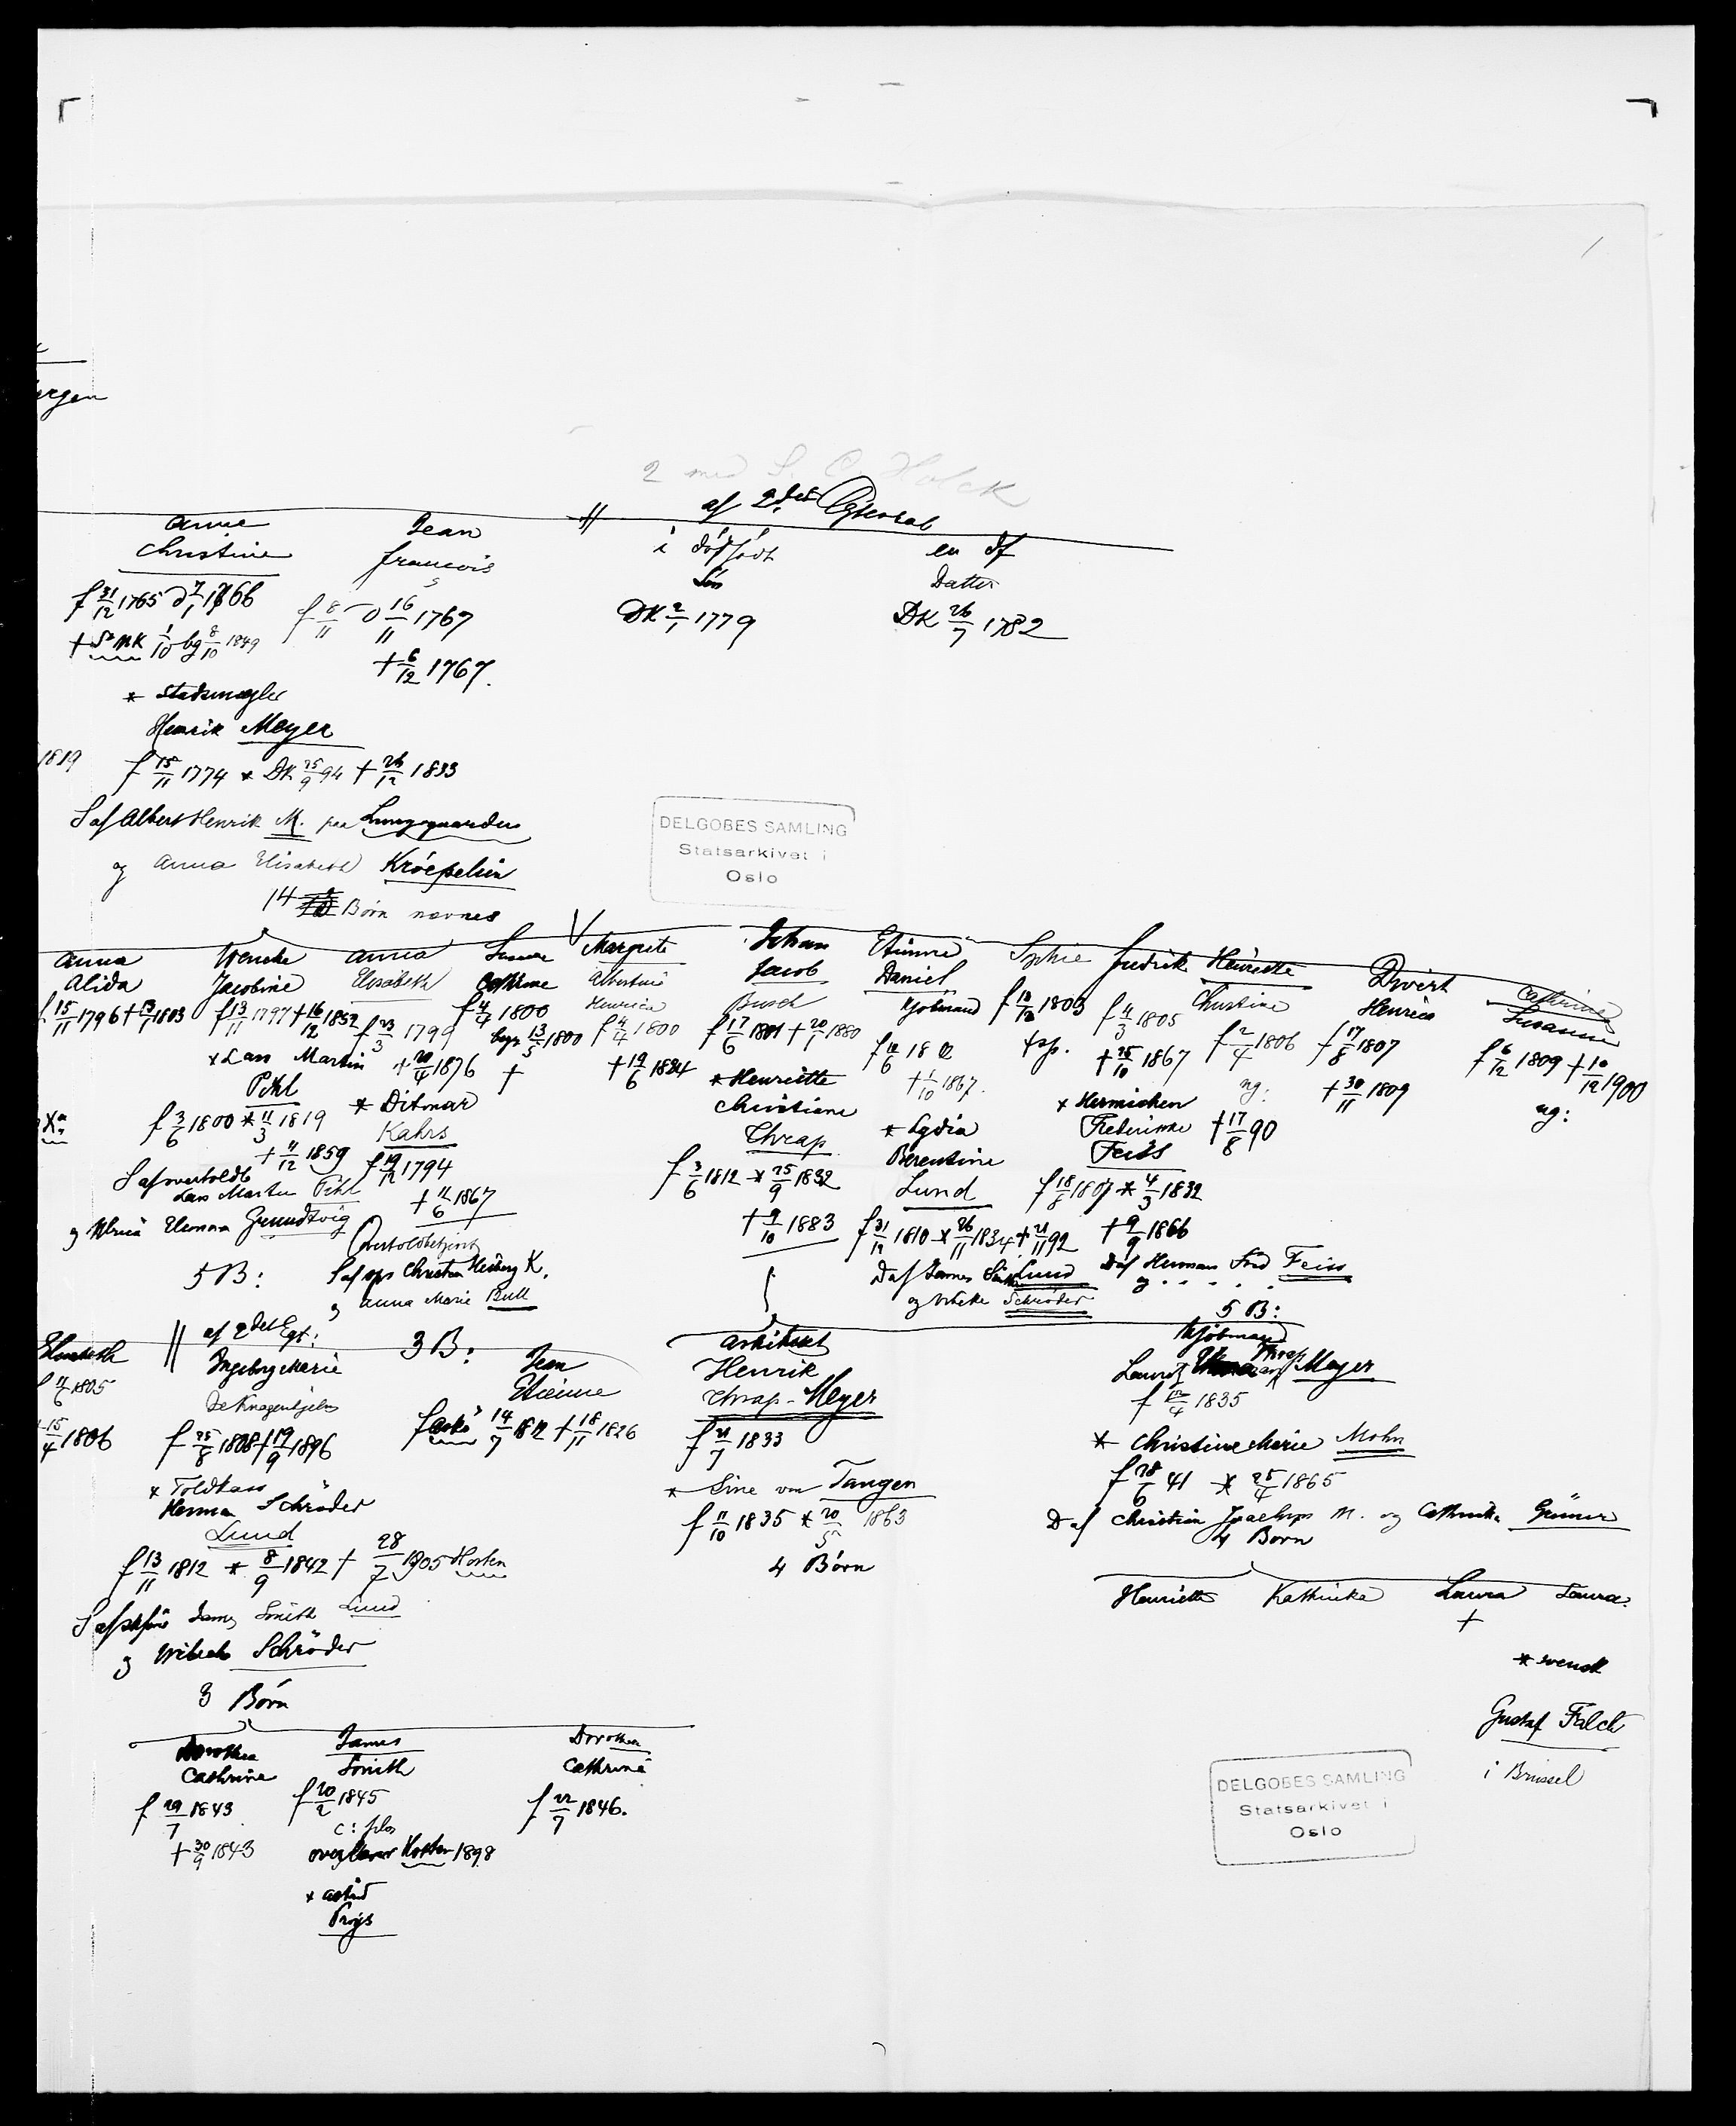 2 med S. C. Holck
af 2det Egteskab
Anne
Christine
f 31/12 1765 d 7/1 1766
+ St NK 1/10 bg 8/10 1849
* Stadsmægler
Henrik Meyer
f 15/11 1774 * DK 25/9 94 + 26/12 1833
S af Albert Henrik M. paa Lungegaarden
og Anna Elisabeth Kröepelin
14 Børn nævnes
Jean
francois
f 8/11 d 16/11 1767
+ 6/12 1767.
i dødfødt
Søn
DK 2/1 1779
en df
Datter
DK 26/7 1782
1819
DELGOBES SAMLING
Statsarkivet i
Oslo
Anna
Alida
f 15/11 1796 + 13/1 1803
Wenche
Jacobine
f 13/11 1797 + 16/12 1852
* Lars Martin
Pihl
f 3/6 1800 * 11/3 1819
+ 11/12 1859
S af overtoldb
Lars Martin Pihl
og Ulrica Elenora Grundtvig
5 B:
Anna
Elisabeth
f 23/3 1799
+ 20/4 1876
* Ditmar
Kahrs
f 19/12 1794
+ 11/6 1867
Overtoldbetjent
S af sps Christen Heiberg K.
og Anna Marie Bull
3 B:
Susanne
Cathrine
f 4/4 1800
begr 13/5 1800
+
Margrete
Albertine
Henrica
f 4/4 1800
+ 19/6 1884
Johan
Jacob
Busch
f 17/6 1801 + 20/1 1880
* Henriette
Christiane
Thrap
f 3/6 1812 * 25/9 1832
+ 9/10 1883
Etienne
Daniel
Kjøbmand
f 12/6 1802
+ 1/10 1867.
* Lydia
Berentine
Lund
f 31/12 1810 * 26/11 1834 + 21/11 92
D af James Smith Lund
og Vibeke Schrøder
Sophie
f 13/12 1803
+ sp.
fredrik
f 11/3 1805
+ 25/10 1867
* Hermichen
Frederikke
Feiss
f 18/8 1807 * 4/3 1832
+ 9/9 1866
D af Herman Fred Feiss
og - - - -
5 B:
Henriette
Christine
f 2/4 1806
ug:
+ 17/8 90
Divert
Henrich
f 17/8 1807
+ 30/11 1809
Cathrine
Susanne
f 6/12 1809 + 10/12 1900
ug:
Elisabeth
f 11/6 1805
+ 15/4 1806
af 2det Egt:
Ingeborg Marie
de Knagenhjelm
f 25/8 1808 + 19/9 1896
* Toldkass
Herman Schrøder
Lund
f 13/11 1812 * 8/9 1842 + 28/7 1905 Horten
S af James Smith Lund
og Vibeke Schrøder
3 Børn
Jean
Etienne
f Askø 14/7 1812 + 18/11 1826
Arkitekt
Henrik
Thrap-Meyer
f 21/7 1833
* Sine von Tangen
f 11/10 1835 * 20/5 1863
4 Børn
Kjøbmand
Lauritz Thrap Meyer
f 12/4 1835
* Christine Marie Mohn
f 28/6 41 * 25/4 1865
D af Christian M. og Cathinka
4 Børn
Henriette Kathinka Laura Laura
+
* svensk
Gustaf Falck
i Brüssel
Dorothea
Cathrine
f 29/7 1843
+ 30/9 1843
James
Smith
f 20/2 1845
c: filos
overlærer Horten 1898
* Astrid
Prøys
Dorothea
Cathrine
f 22/7 1846.
DELGOBES SAMLING
Statsarkivet i
Oslo